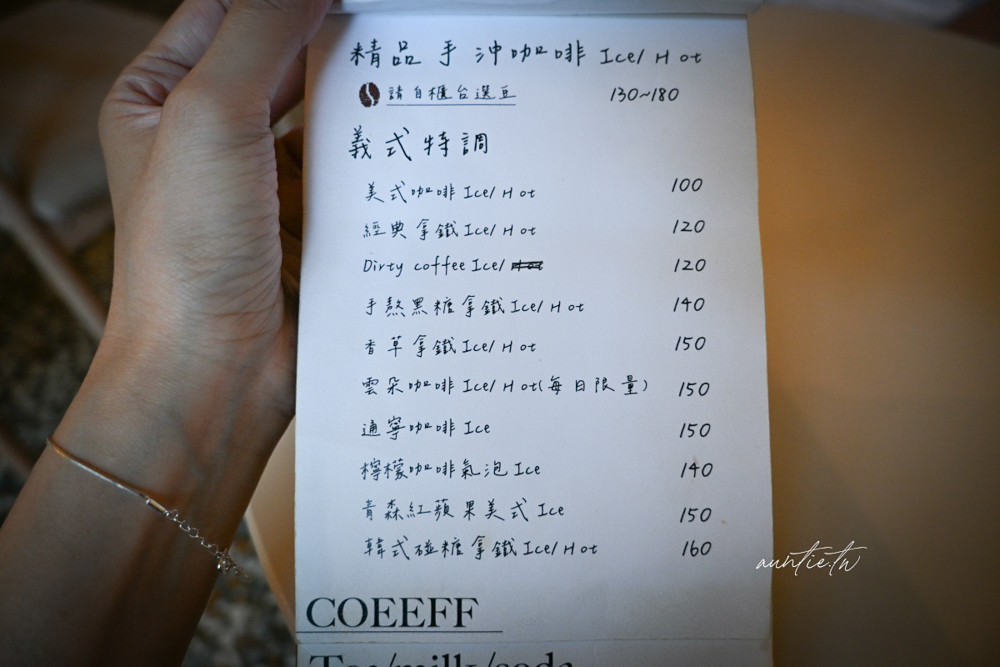 精品手沖咖啡 Ice/Hot
請自櫃台選豆 130~180
義式特調
美式咖啡 Ice/Hot 100
經典拿鐵 Ice/Hot 120
Dirty coffee Ice/ 120
手熬黑糖拿鐵 Ice/Hot 140
香草拿鐵 Ice/Hot 150
雲朵咖啡 Ice/Hot(每日限量) 150
通寧咖啡 Ice 150
檸檬咖啡氣泡 Ice 140
青森紅蘋果美式 Ice 150
韓式碰糖拿鐵 Ice/Hot 160
auntie.tw
COEEFF
Tea/milk/soda